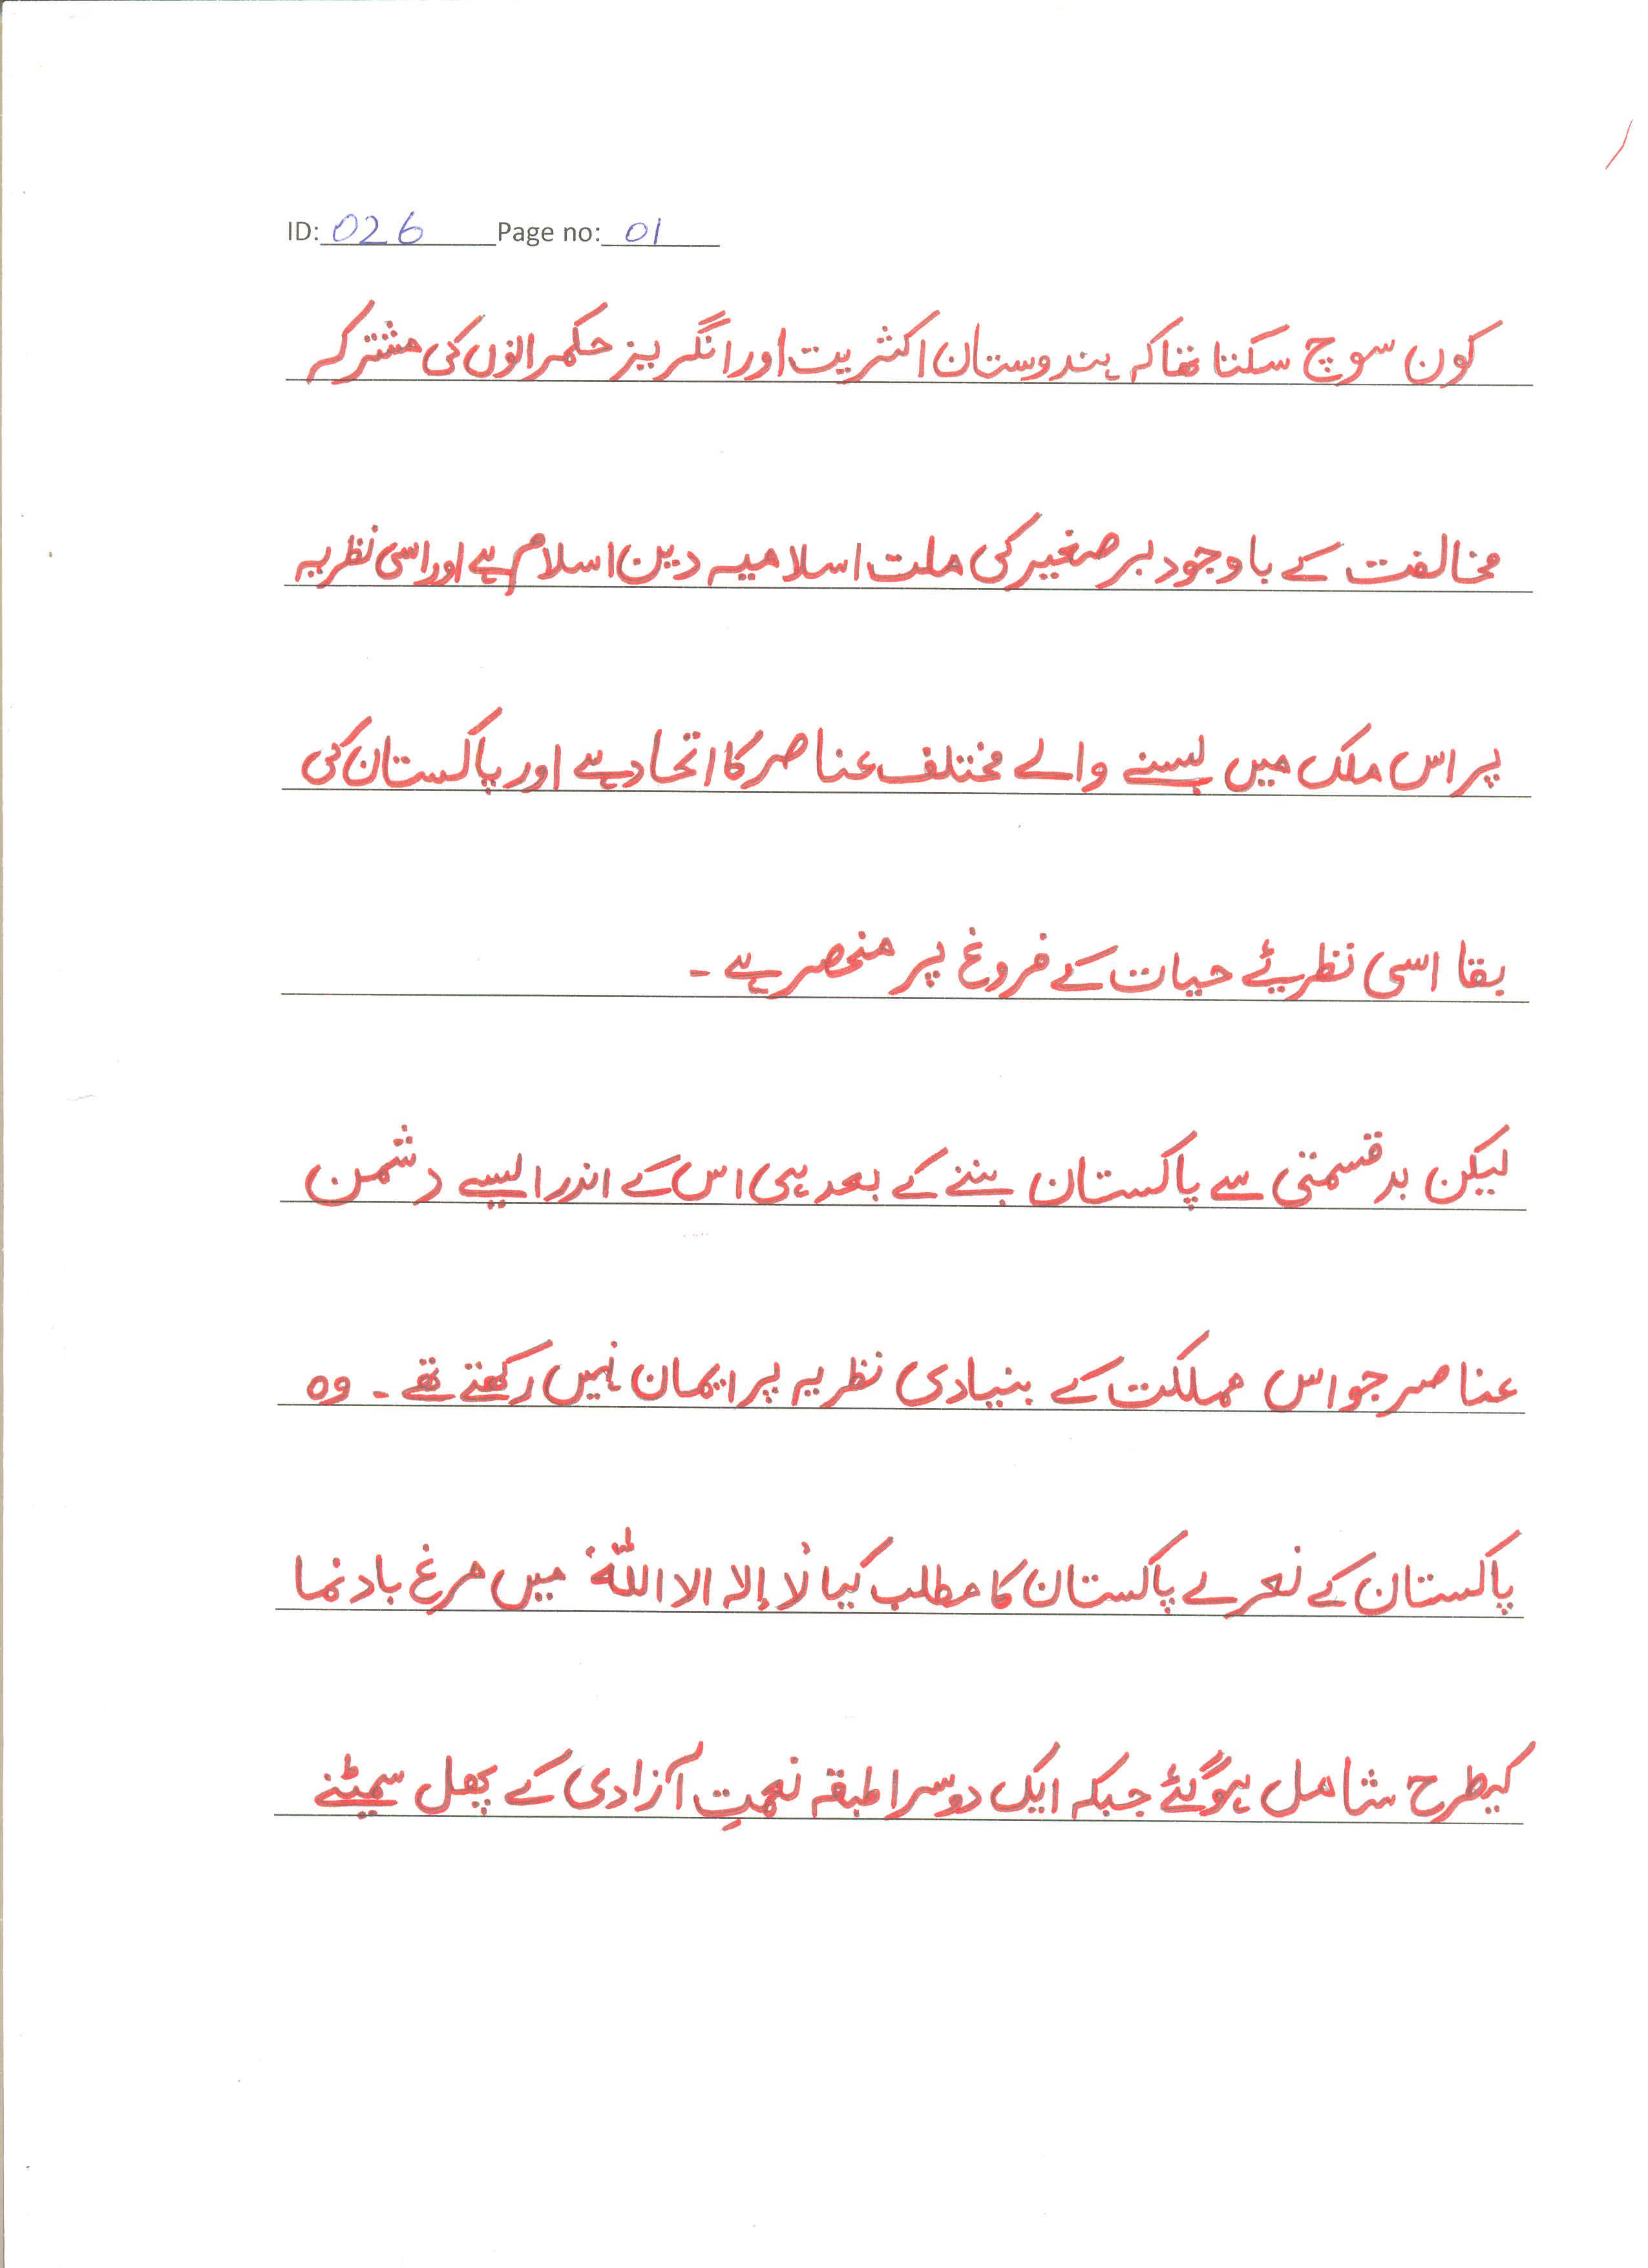 ID: 026 Page no: 01
کون سوچ سکتا تھا کہ ہندوستان اکثریت اور انگریز حکمرانوں کی مشترکہ
مخالفت کے باوجود برصغیر کی ملت اسلامیہ دین اسلام ہے اور اسی نظریہ
پر اس ملک میں بسنے والے مختلف عناصر کا اتحاد ہے اور پاکستان کی
بقا اسی نظریئے حیات کے فروغ پر منحصر ہے ۔
لیکن بدقسمتی سے پاکستان بننے کے بعد ہی اس کے اندر ایسے دشمن
عناصر جو اس مملکت کے بنیادی نظریہ پر ایمان نہیں رکھتے تھے ۔ وہ
پاکستان کے نعرے پاکستان کا مطلب کیا لا إلہ الا اللہ میں مرغ بادنما
کیطرح شامل ہوگئے جبکہ ایک دوسرا طبقہ نعمتِ آزادی کے پھل سمیٹنے